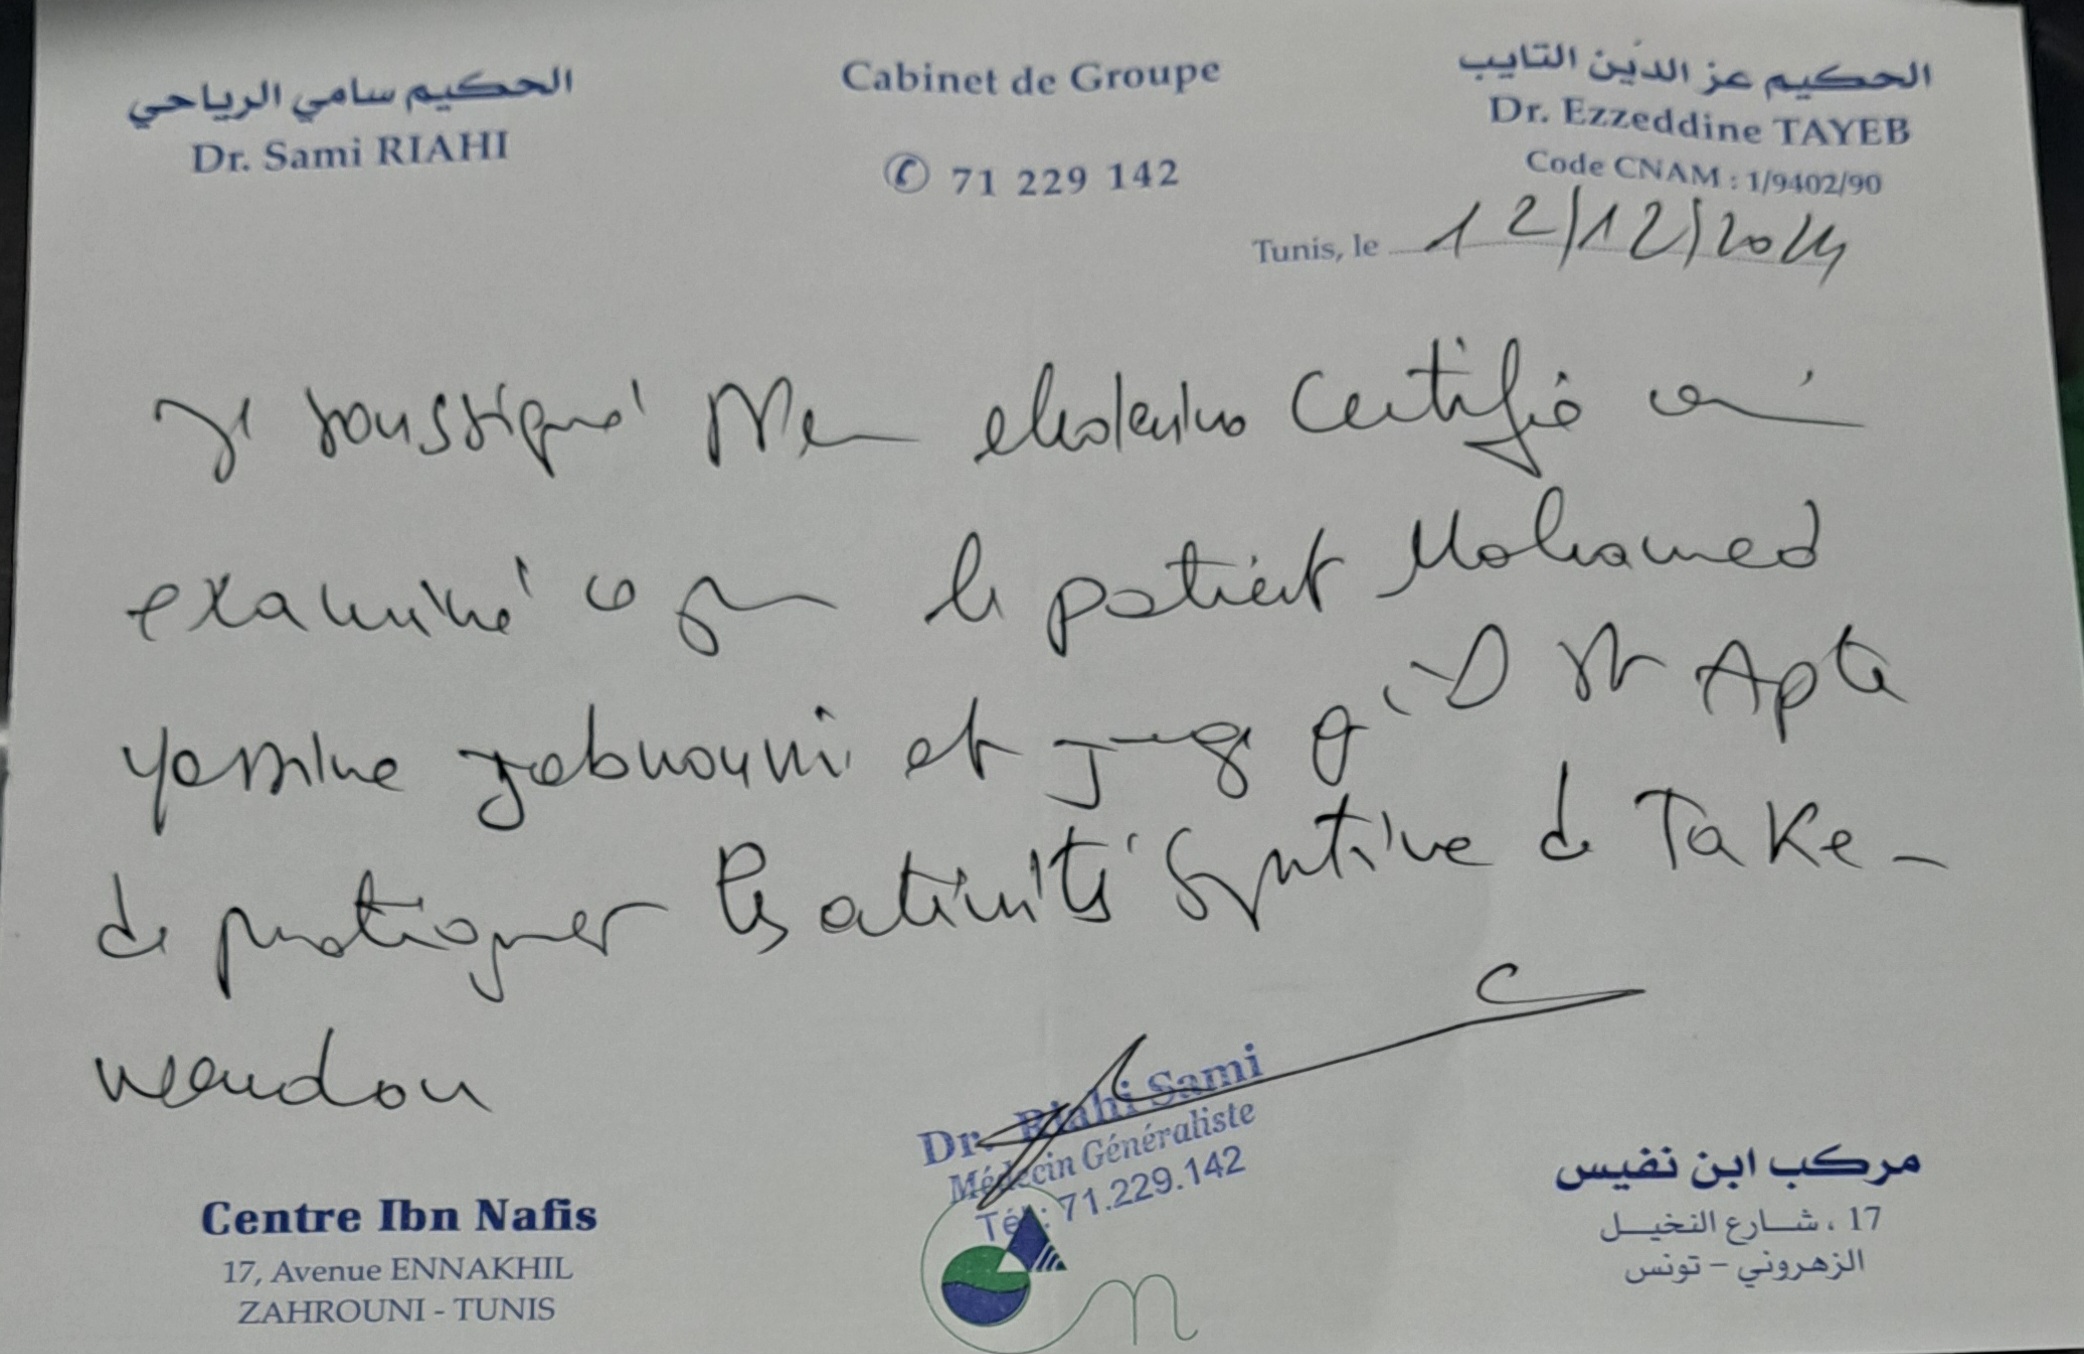 الحكيم سامي الرياحي
Dr. Sami RIAHI
Cabinet de Groupe
✆ 71 229 142
الحكيم عز الدين التايب
Dr. Ezzeddine TAYEB
Code CNAM : 1/9402/90
Tunis, le 12/12/2024
Je soussigné certifie
examiné ce jour le patient Mohamed
Yassine et juge qu'il est Apte
de pratiquer les activités sportive de Take-
wendou
Dr. Riahi Sami
Médecin Généraliste
Tél : 71.229.142
Centre Ibn Nafis
17, Avenue ENNAKHIL
ZAHROUNI - TUNIS
مركب ابن نفيس
17 ، شارع النخيل
الزهروني - تونس